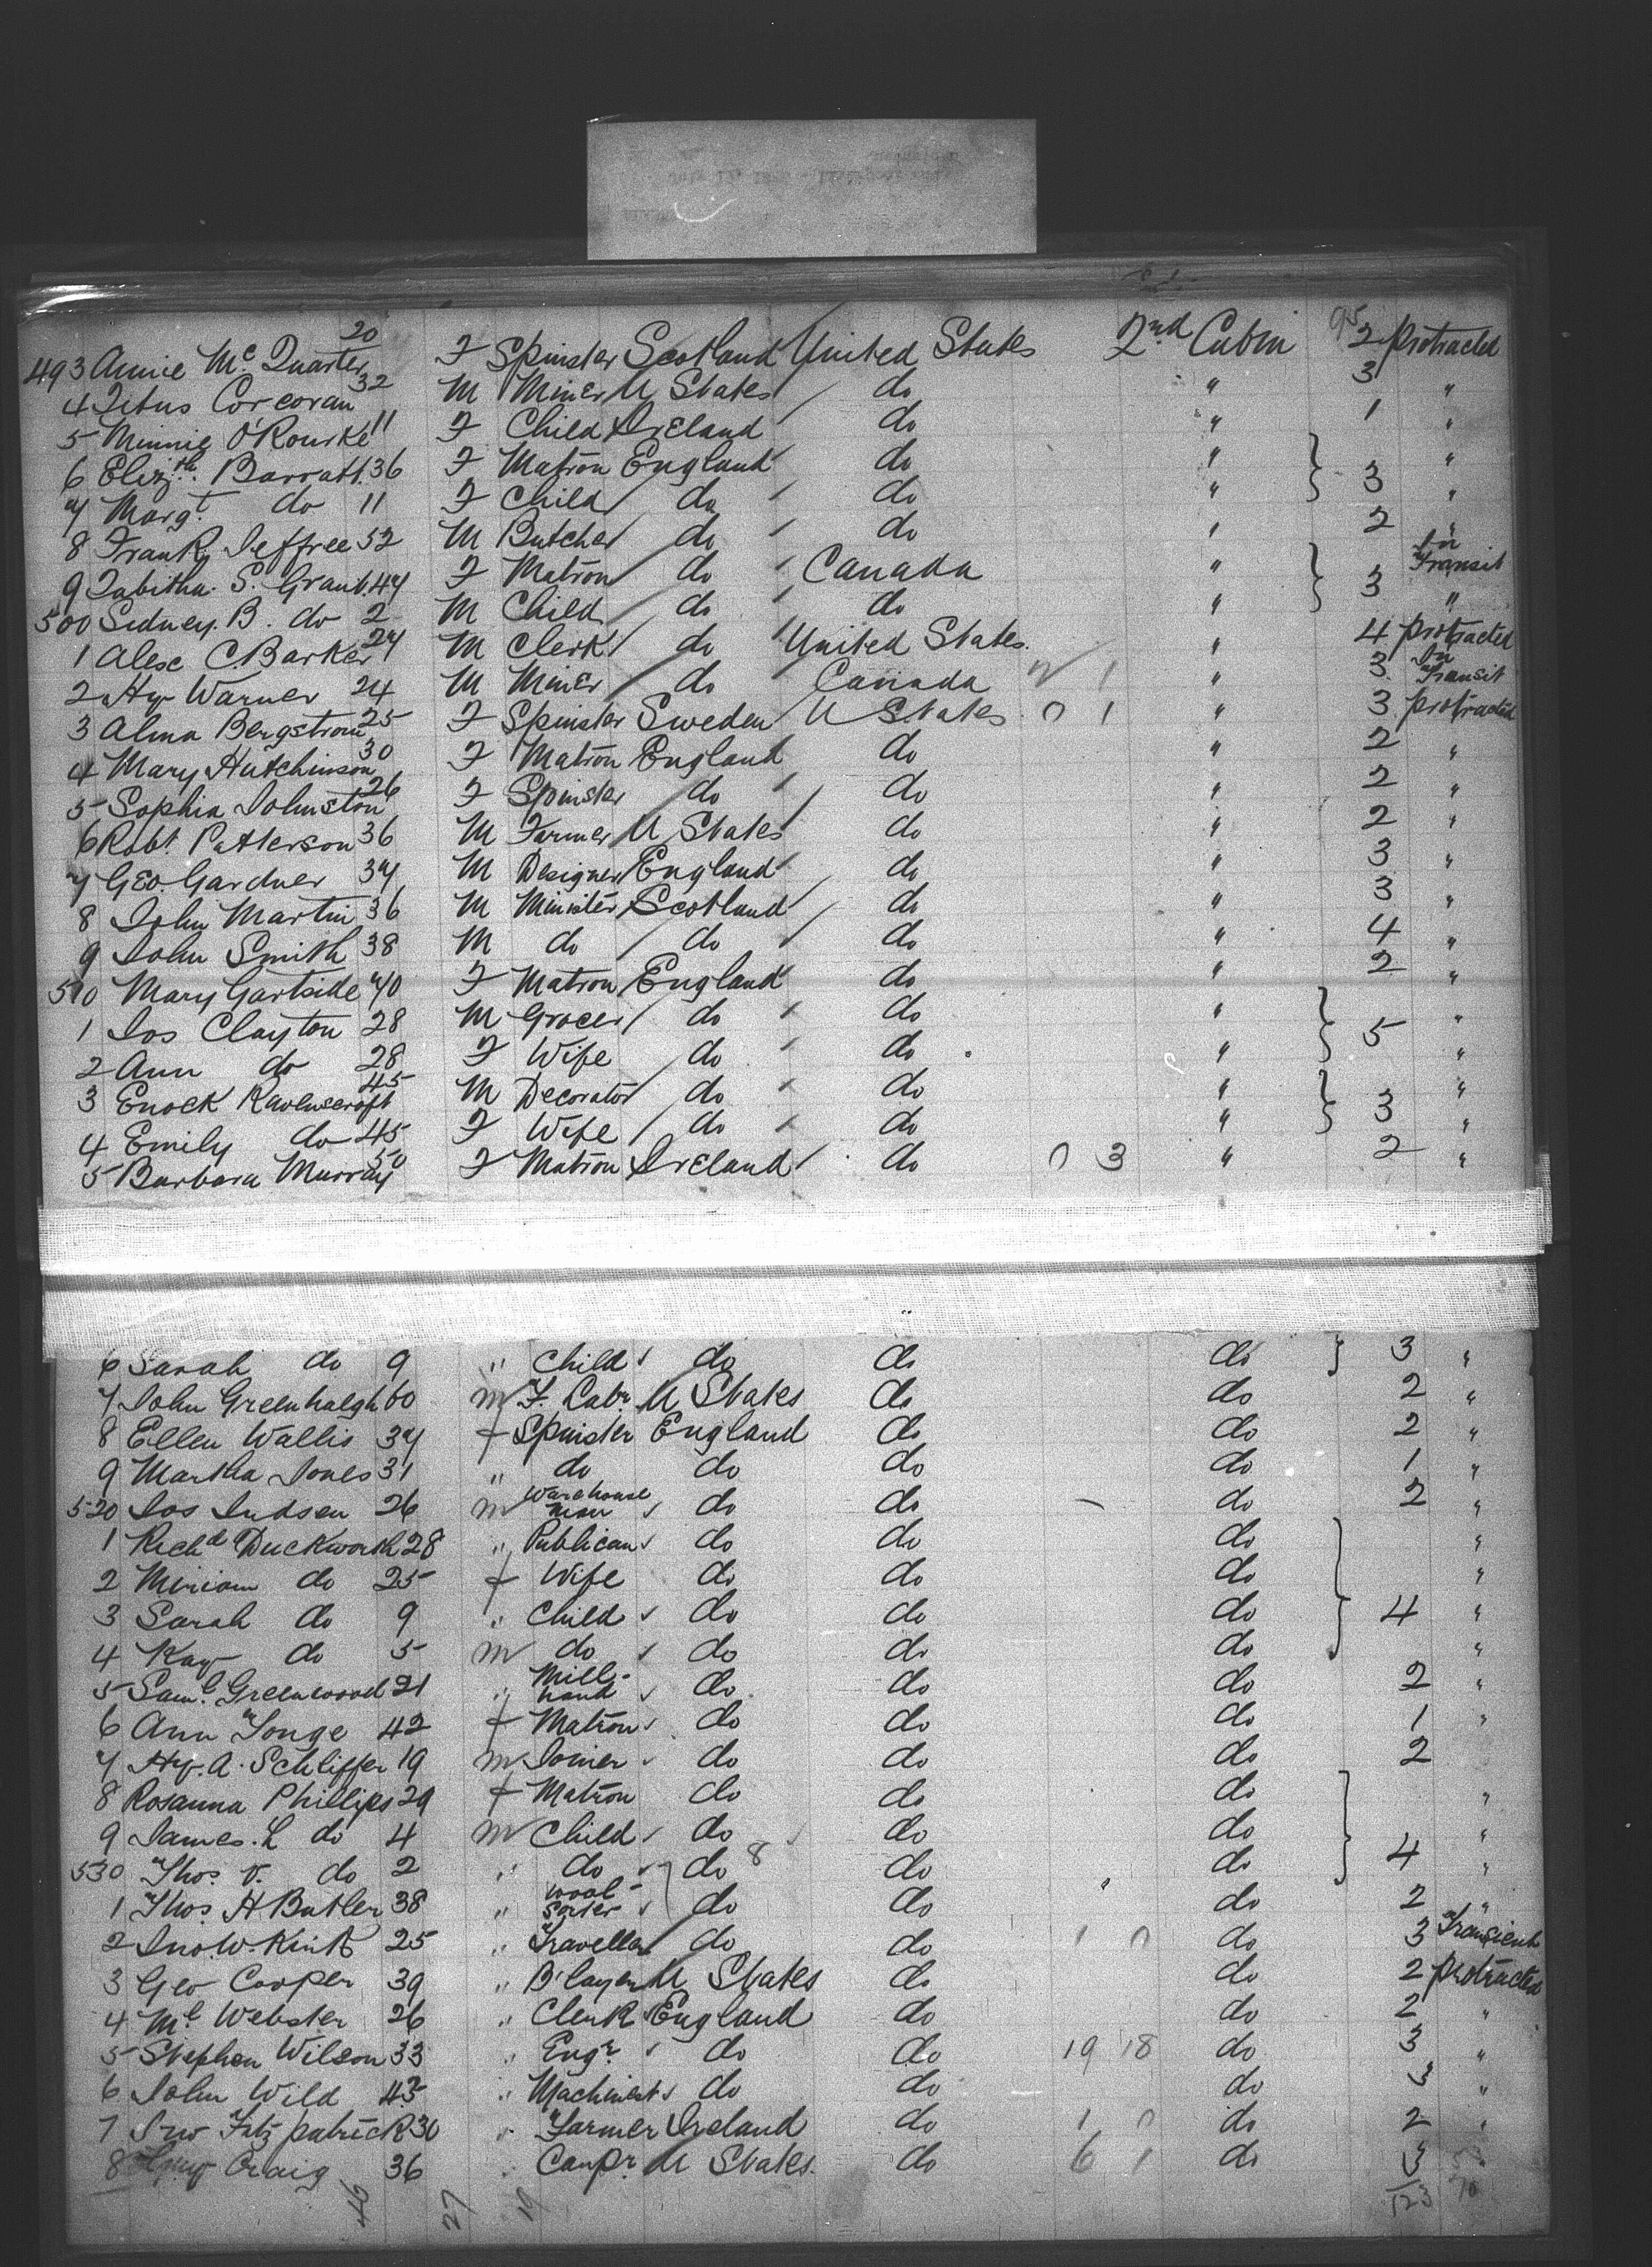 95
493 Annie McQuarter 20 F Spinster Scotland United States 2nd Cabin 2 Protracted
4 Titus Corcoran 32 M Miner U States do " 3 "
5 Minnie O'Rourke 11 F Child Ireland do " 1 "
6 Elizth. Barratt 36 F Matron England do " "
7 Margt. do 11 F Child do do " 3 "
8 Frank Jeffree 52 M Butcher do do " 2 "
9 Tabitha S. Grant 47 F Matron do Canada " In Transit
500 Sidney. B. do 2 M Child do do " 3 "
1 Alexe C Barker 27 M Clerk do United States. " 4 protracted
2 Hy Warner 24 M Miner do Canada 1 " 3 In Transit
3 Alma Bergstrom 25 F Spinster Sweden U States 0 1 " 3 protracted
4 Mary Hutchinson 30 F Matron England do " 2 "
5 Sophia Johnston 26 F Spinster do do " 2 "
6 Robt. Patterson 36 M Farmer U States do " 2 "
7 Geo. Gardner 37 M Designer England do " 3 "
8 John Martin 36 M Minister Scotland do " 3 "
9 John Smith 38 M do do do " 4 "
510 Mary Gartside 40 F Matron England do " 2 "
1 Jos Clayton 28 M Grocer do do " "
2 Ann do 28 F Wife do do " 5 "
3 Enock Ravenscroft 45 M Decorator do do " "
4 Emily do 45 F Wife do do " 3 "
5 Barbara Murray 50 F Matron Ireland do 0 3 " 2 "
6 Sarah do 9 " Child do do do 3 "
7 John Greenhalgh 60 m F. Labr. U States do do 2 "
8 Ellen Wallis 37 f Spinster England do do 2 "
9 Martha Jones 31 " do do do do 1 "
520 Jos Judsen 26 m Warehouse man do do do 2 "
1 Richd Duckworth 28 " Publican do do do "
2 Miriam do 25 f Wife do do do "
3 Sarah do 9 " Child do do do 4 "
4 Kay do 5 m do do do do "
5 Saml. Greenwood 21 " Mill-hand do do do 2 "
6 Ann Tonge 42 f Matron do do do 1 "
7 Hy. A. Schliffer 19 m Joiner do do do 2
8 Rosanna Phillips 29 f Matron do do do "
9 James. L do 4 m Child do do do "
530 Thos. V. do 2 " do do 8 do do 4 "
1 Thos. H Butler 38 " Wool-Sorter do do do 2 "
2 Jno. W. Kirk 25 " Traveller do do 1 0 do 3 Transient
3 Geo Cooper 39 " B'layer U States do do 2 protracted
4 Ml Webster 26 " Clerk England do do 2 "
5 Stephen Wilson 33 " Engr. do do 19 18 do 3 "
6 John Wild 43 " Machinest do do do 3 "
7 Jno Fitzpatrick 30 " Farmer Ireland do 1 0 do 2 "
8 Craig 36 " Carpr. U States. do 6 1 do 3
46 27 19 123